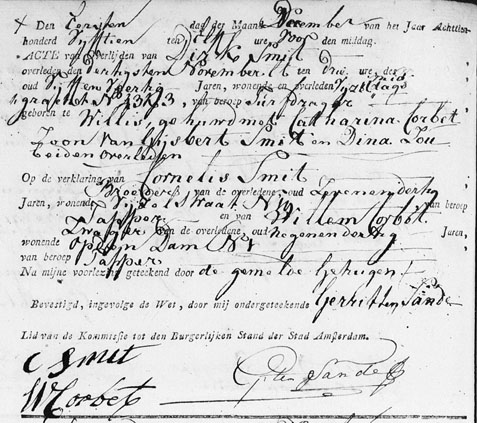 Den Eersten dag der Maand December van het Jaar Achttien-
honderd Vyftien ten ure voor den middag.
ACTE van Overlyden van Dirk Smit
overleden den dertigsten November ten drie ure des
oud Jaren, wonende en overleden
gragten No 313, van beroep Bierdrager
geboren te Willis, gehuwd met Catharina Corbet
Zoon van Gysbert Smit en Dina Lou
beiden overleden
Op de verklaring van Cornelis Smit
Broeder van de overledene, oud Zevenendertig
Jaren, wonende straat No van beroep
Tapper en van Willem Corbet
Zwager van de overledene, oud negenendertig Jaren,
wonende Op den Dam No 1
van beroep Tapper
Na mijne voorlezing geteekend door de gemelde getuigen
Bevestigd, ingevolge de Wet, door mij ondergeteekende Gerrit ten Sande
Lid van de Kommissie tot den Burgerlijken Stand der Stad Amsterdam.
C Smit
W Corbet
G ten Sande